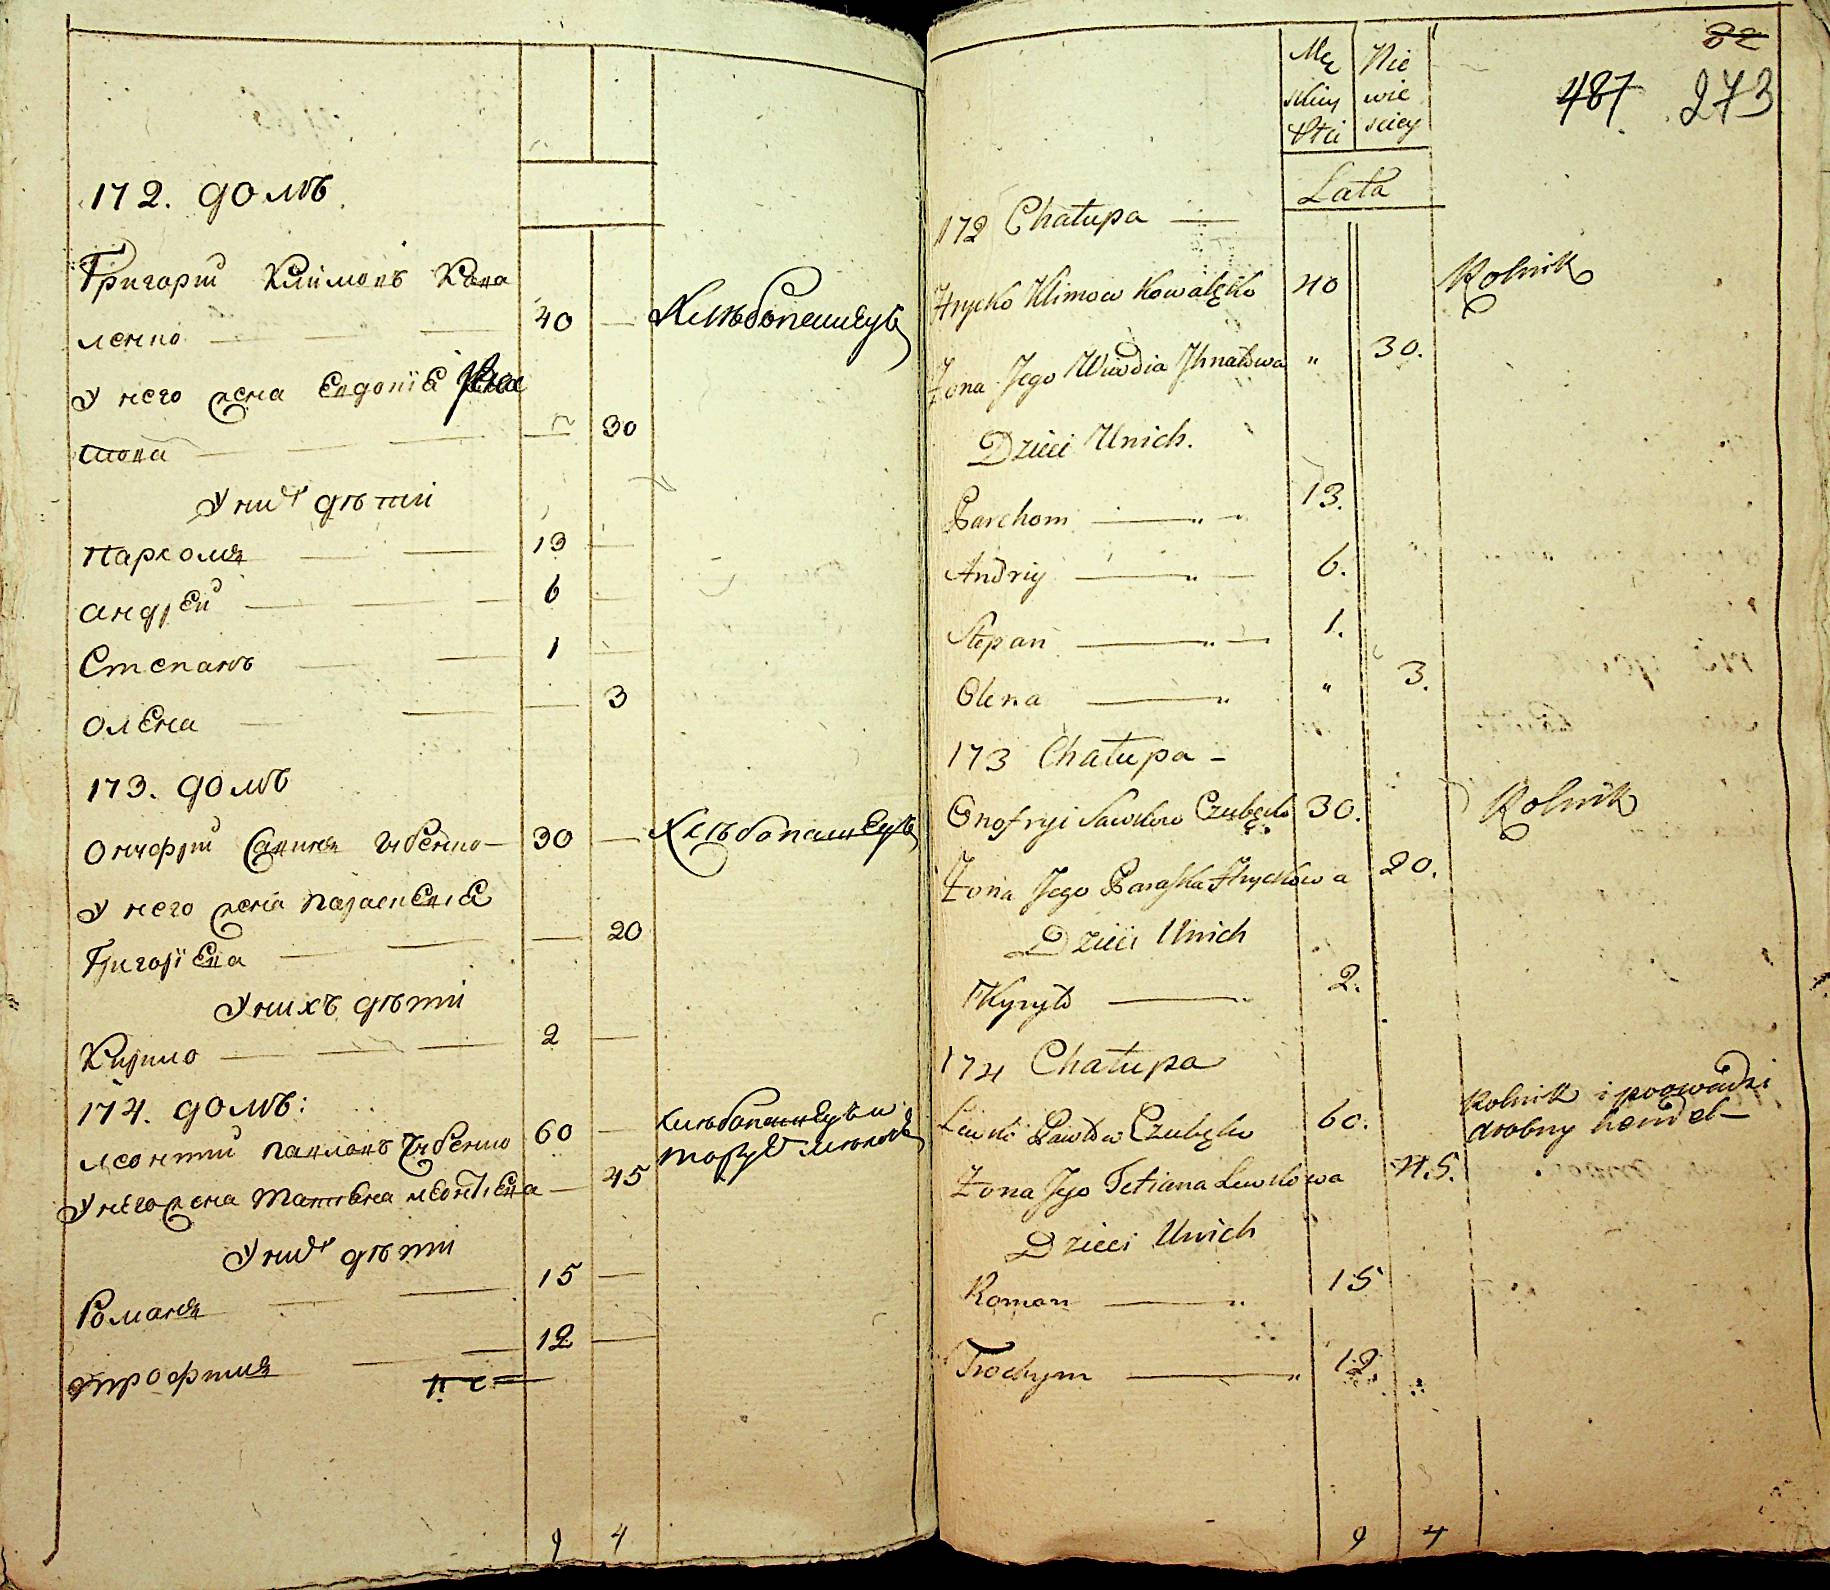 172. домъ
Григорий Климовъ Кова
ленко 40 — хлебопашецъ
У него жена Евдокiя Игна
това — 30
У них дѣти
Пархомъ — 13 —
Андрей — 6 —
Степанъ — 1 —
Олена — 3
173. домъ
Онуфрий Савинъ Чубенко — 30 — хлѣбопашецъ
У него жена Параскевiя
Григорiева — 20
У нихъ дѣти
Кирило — 2 —
174. домъ:
Леонтий Павловъ Чубенко 60 — хлѣбопашецъ и
торгуе
У него жена Татiяна Леонтiева — 45
У них дѣти
Романъ — 15 —
Трофимъ — 12 —
9 4
82
487 273
Mę Nie
skiey wie
Płci sciey
Lata
172 Chałupa —
Hrycko Klimow Kowalęko 40 Rolnik
Żona Jego Wiwdia Ihnatowa " 30.
Dzieci Unich.
Parchom — " 13.
Andriy — " 6.
Stepan — " 1.
Olena — " " 3.
173 Chałupa –
Onofryi Sawkow Czubęko 30. Rolnik
Żona Jego Paraska Hryckowa 20.
Dzieci Unich
Kyryło — 2.
174 Chałupa
Lewko Pawłow Czubęko 60. Rolnik i prowadzi
drobny handel —
Żona Jego Tetiana Lewkowa 45.
Dzieci Unich
Roman — " 15
Trochym — " 12.
9 4